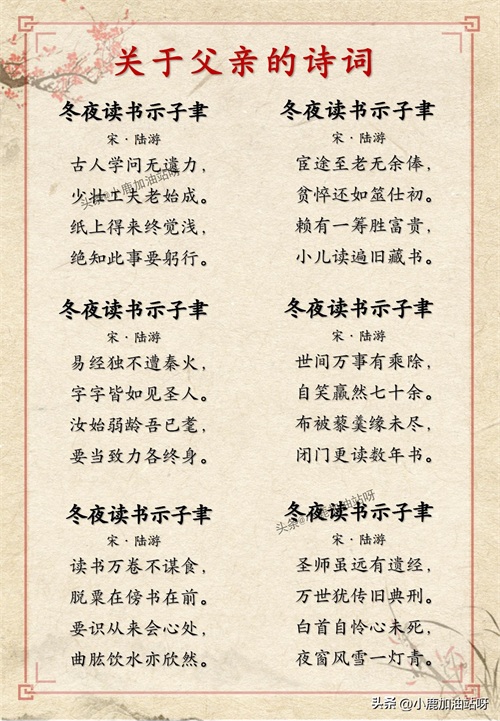 关于父亲的诗词
冬夜读书示子聿
宋·陆游
古人学问无遗力，
少壮工夫老始成。
纸上得来终觉浅，
绝知此事要躬行。
冬夜读书示子聿
宋·陆游
宦途至老无余俸，
贫悴还如筮仕初。
赖有一筹胜富贵，
小儿读遍旧藏书。
冬夜读书示子聿
宋·陆游
易经独不遭秦火，
字字皆如见圣人。
汝始弱龄吾已耄，
要当致力各终身。
冬夜读书示子聿
宋·陆游
世间万事有乘除，
自笑羸然七十余。
布被藜羹缘未尽，
闭门更读数年书。
冬夜读书示子聿
宋·陆游
读书万卷不谋食，
脱粟在傍书在前。
要识从来会心处，
曲肱饮水亦欣然。
冬夜读书示子聿
宋·陆游
圣师虽远有遗经，
万世犹传旧典刑。
白首自怜心未死，
夜窗风雪一灯青。
头条@小鹿加油站呀
头条@小鹿加油站呀
头条 @小鹿加油站呀